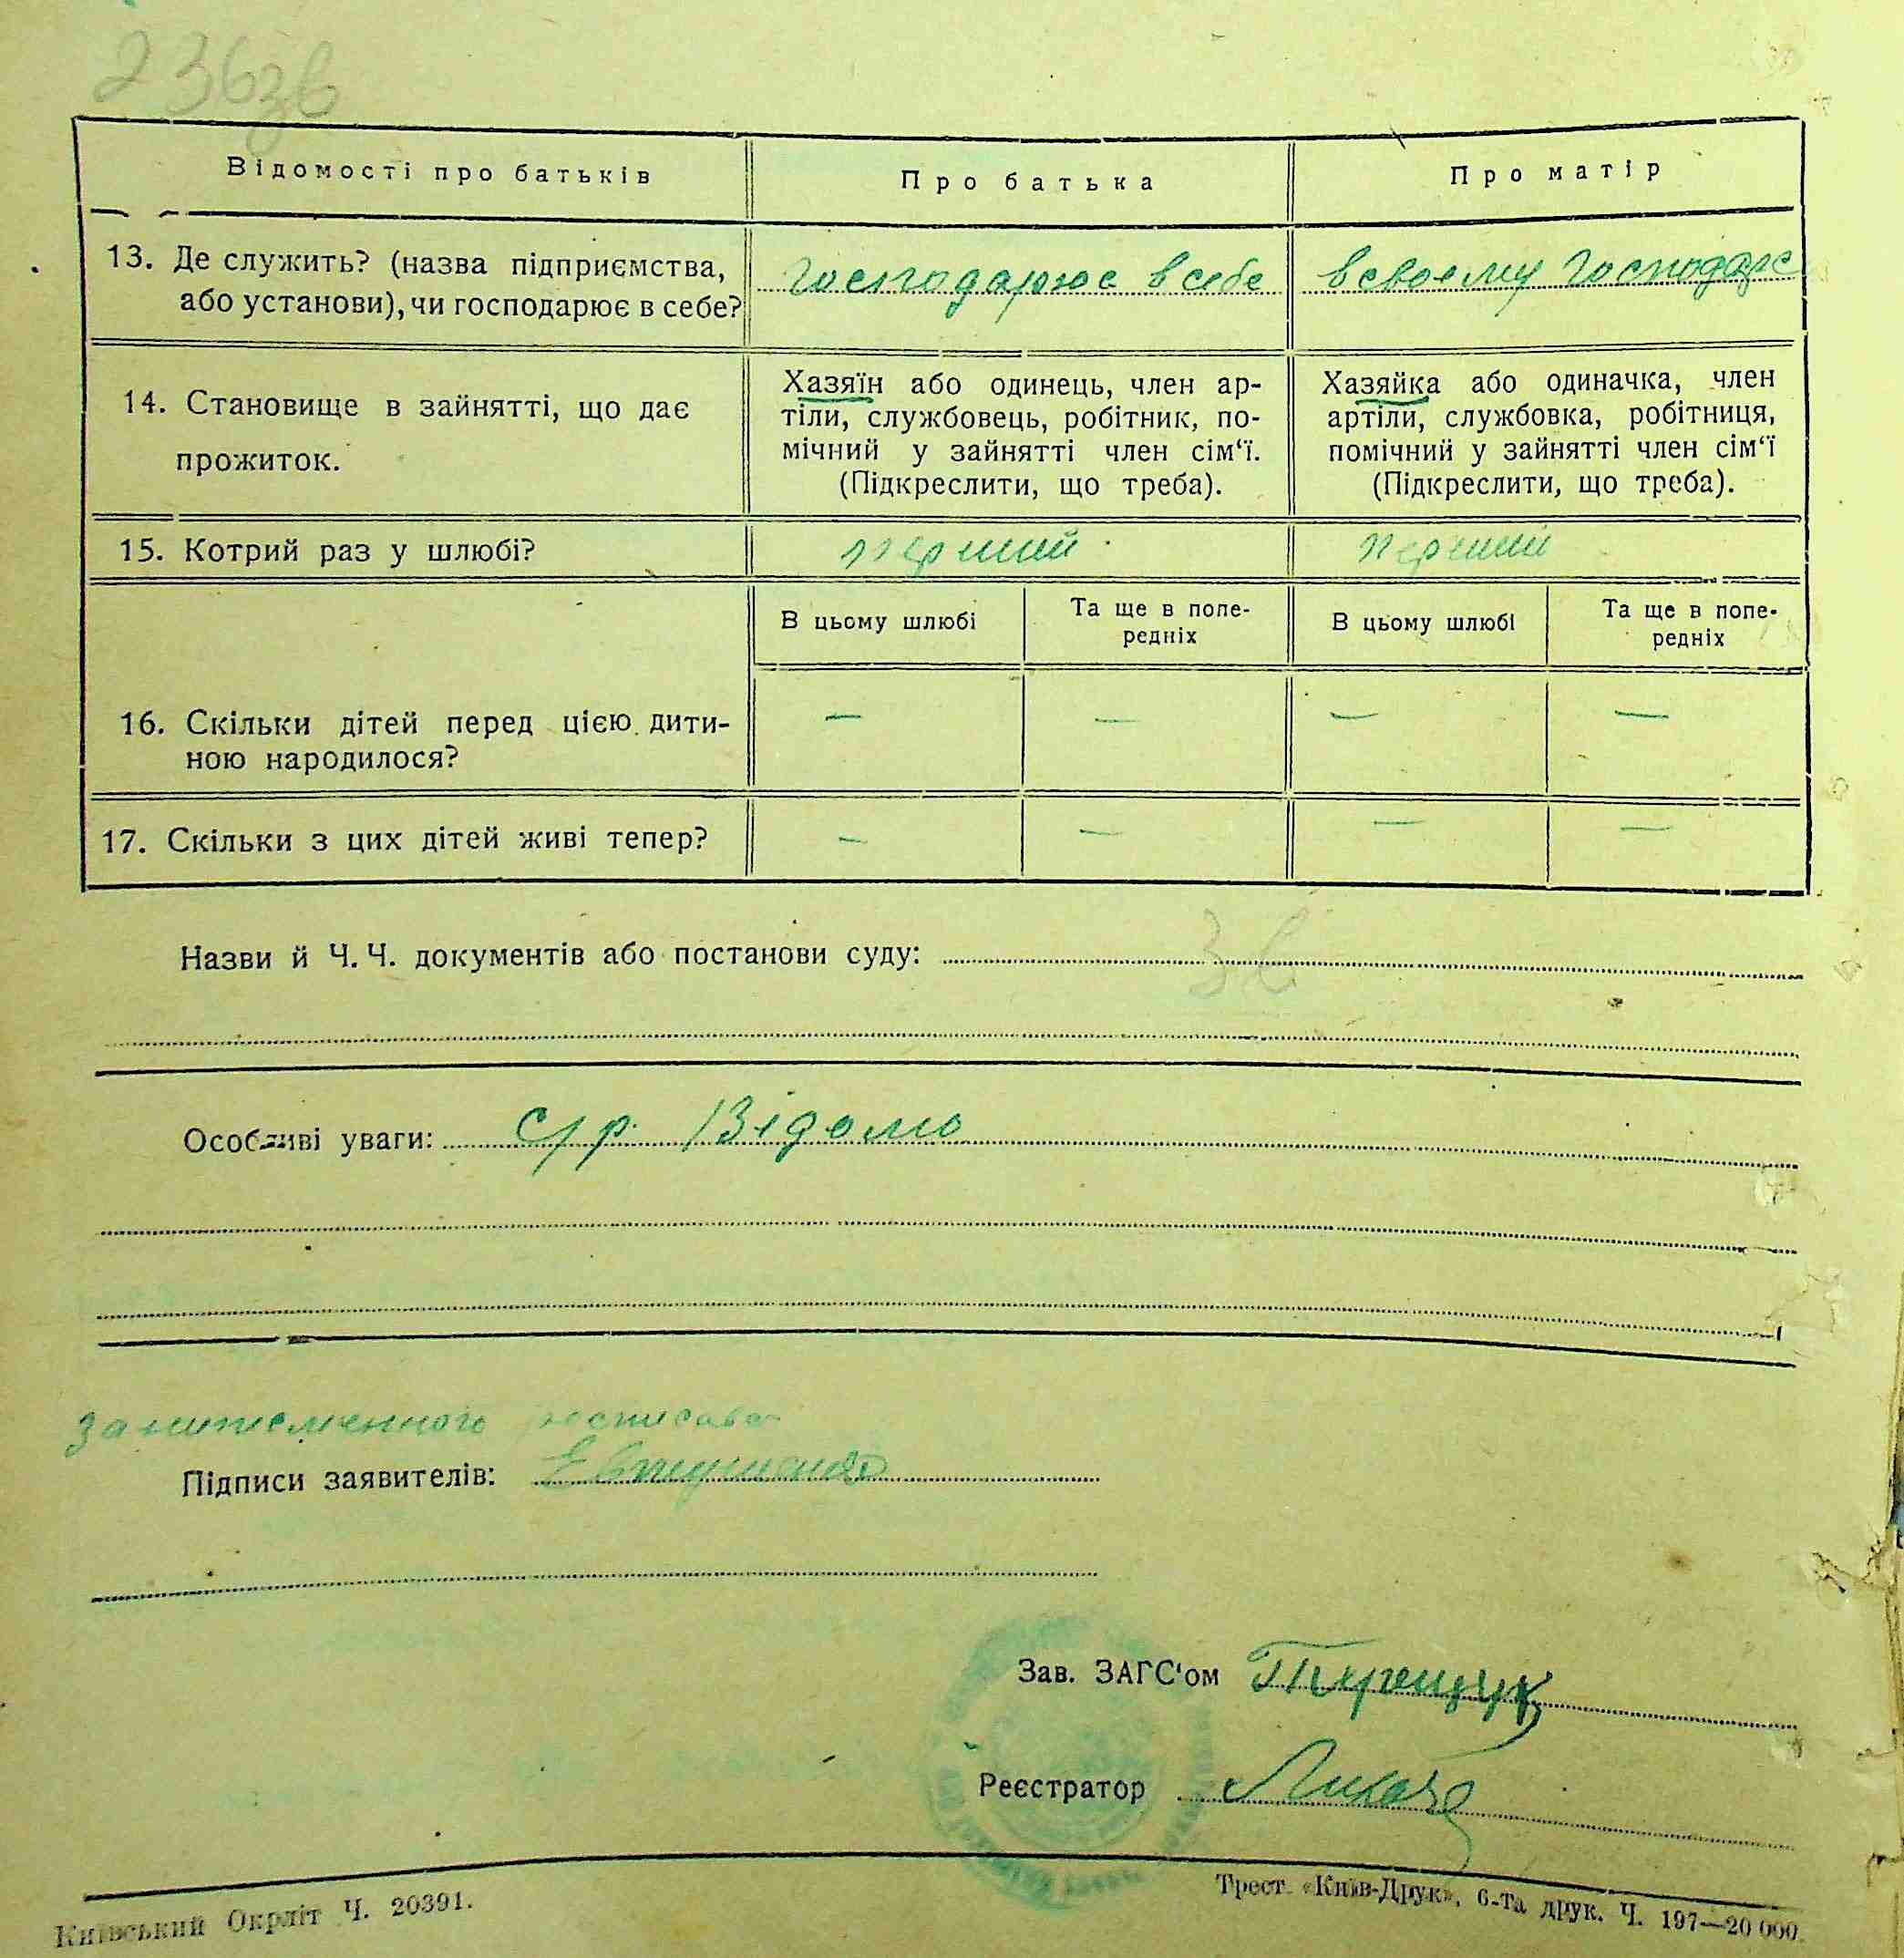 236зв
Відомості про батьків
Про батька
Про матір
13. Де служить? (назва підприємства,
або установи), чи господарює в себе?
господарює в себе
в своему господарс
14. Становище в зайнятті, що дає
прожиток.
Хазяїн або одинець, член ар-
тіли, службовець, робітник, по-
мічний у зайнятті член сім‘ї.
(Підкреслити, що треба).
Хазяйка або одиначка, член
артіли, службовка, робітниця,
помічний у зайнятті член сім‘ї
(Підкреслити, що треба).
15. Котрий раз у шлюбі?
перший
перший
В цьому шлюбі
Та ще в попе-
редніх
В цьому шлюбі
Та ще в попе-
редніх
16. Скільки дітей перед цією дити-
ною народилося?
— — — —
17. Скільки з цих дітей живі тепер?
— — — —
Назви й Ч. Ч. документів або постанови суду:
зв
Особливі уваги: с/р. Відомо
Підписи заявителів:
Зав. ЗАГС‘ом Терещук
Реєстратор
Київський Окрліт Ч. 20391.
Трест «Київ-Друк», 6-та друк. Ч. 197—20 000.